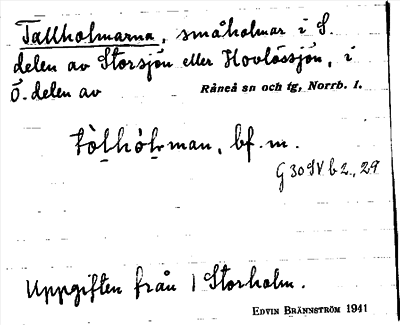 Tallholmarna, småholmar i S.
delen av Storsjön eller Hovlössjön, i
Ö. delen av Råneå sn och tg, Norrb. l.
bf. m.
G 30 IV b 2, 29
Uppgiften från 1 Storholm.
EDVIN BRÄNNSTRÖM 1941